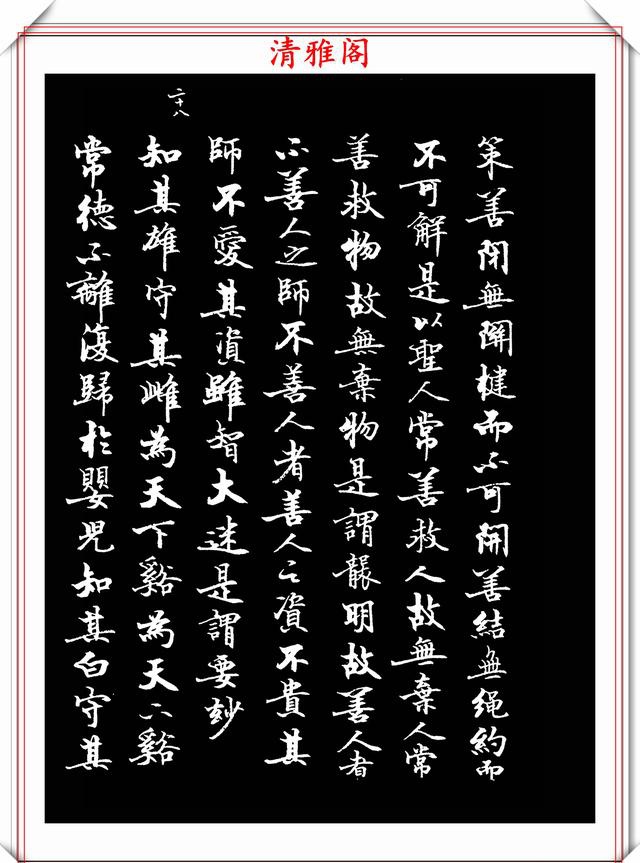 清雅阁
策善閉無關楗而不可開善結無繩約而
不可解是以聖人常善救人故無棄人常
善救物故無棄物是謂襲明故善人者
不善人之師不善人者善人之資不貴其
師不愛其資雖智大迷是謂要玅
二十八
知其雄守其雌為天下谿為天下谿
常德不離復歸於嬰兒知其白守其